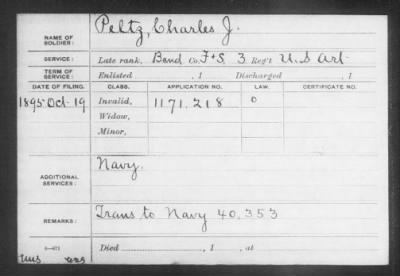 NAME OF SOLDIER: Peltz, Charles J.
SERVICE: Late rank, Band Co. F+S, 3 Reg't U.S Art.
TERM OF SERVICE: Enlisted , 1 Discharged , 1
DATE OF FILING. CLASS. APPLICATION NO. LAW. CERTIFICATE NO.
1895 Oct. 19 Invalid, 1171.218 0
Widow,
Minor,
ADDITIONAL SERVICES: Navy.
REMARKS: Trans to Navy 40,353
Died , 1 , at